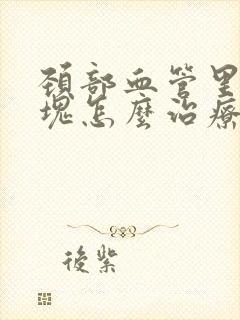 頸部血管里
塊怎麼治療
後紫